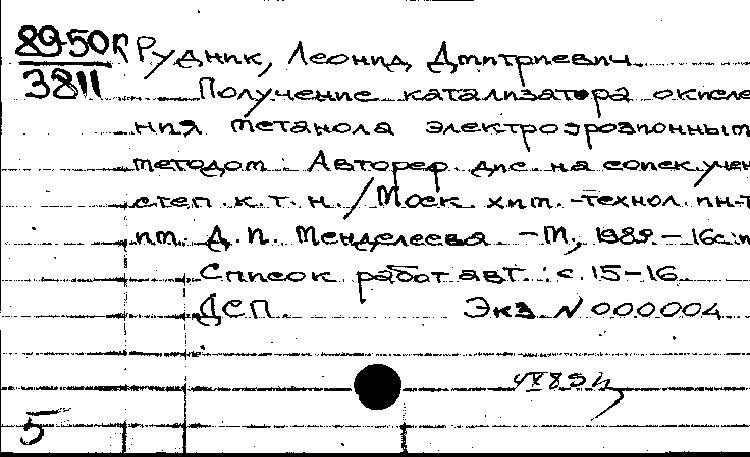 89-50к Рудник, Леонид Дмитриевич.
3811
Получение катализатора окисле
ния метанола электроэрозионным
методом : Автореф. дис. на соиск. учен
степ. к. т. н. / Моск. хим. -технол. ин-т
им. Д. И. Менделеева. -М., 1989. - 16с.:и
Список работ авт. : с. 15-16.
ДСП. Экз. N 000004
5